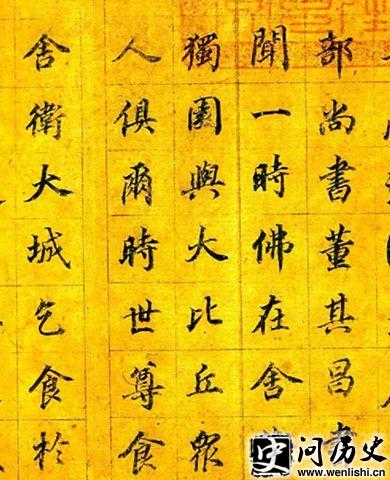 部尚書董其昌
聞一時佛在舍
獨園與大比丘衆
人俱爾時世尊食
舍衛大城乞食於
史 问历史
www.wenlishi.cn